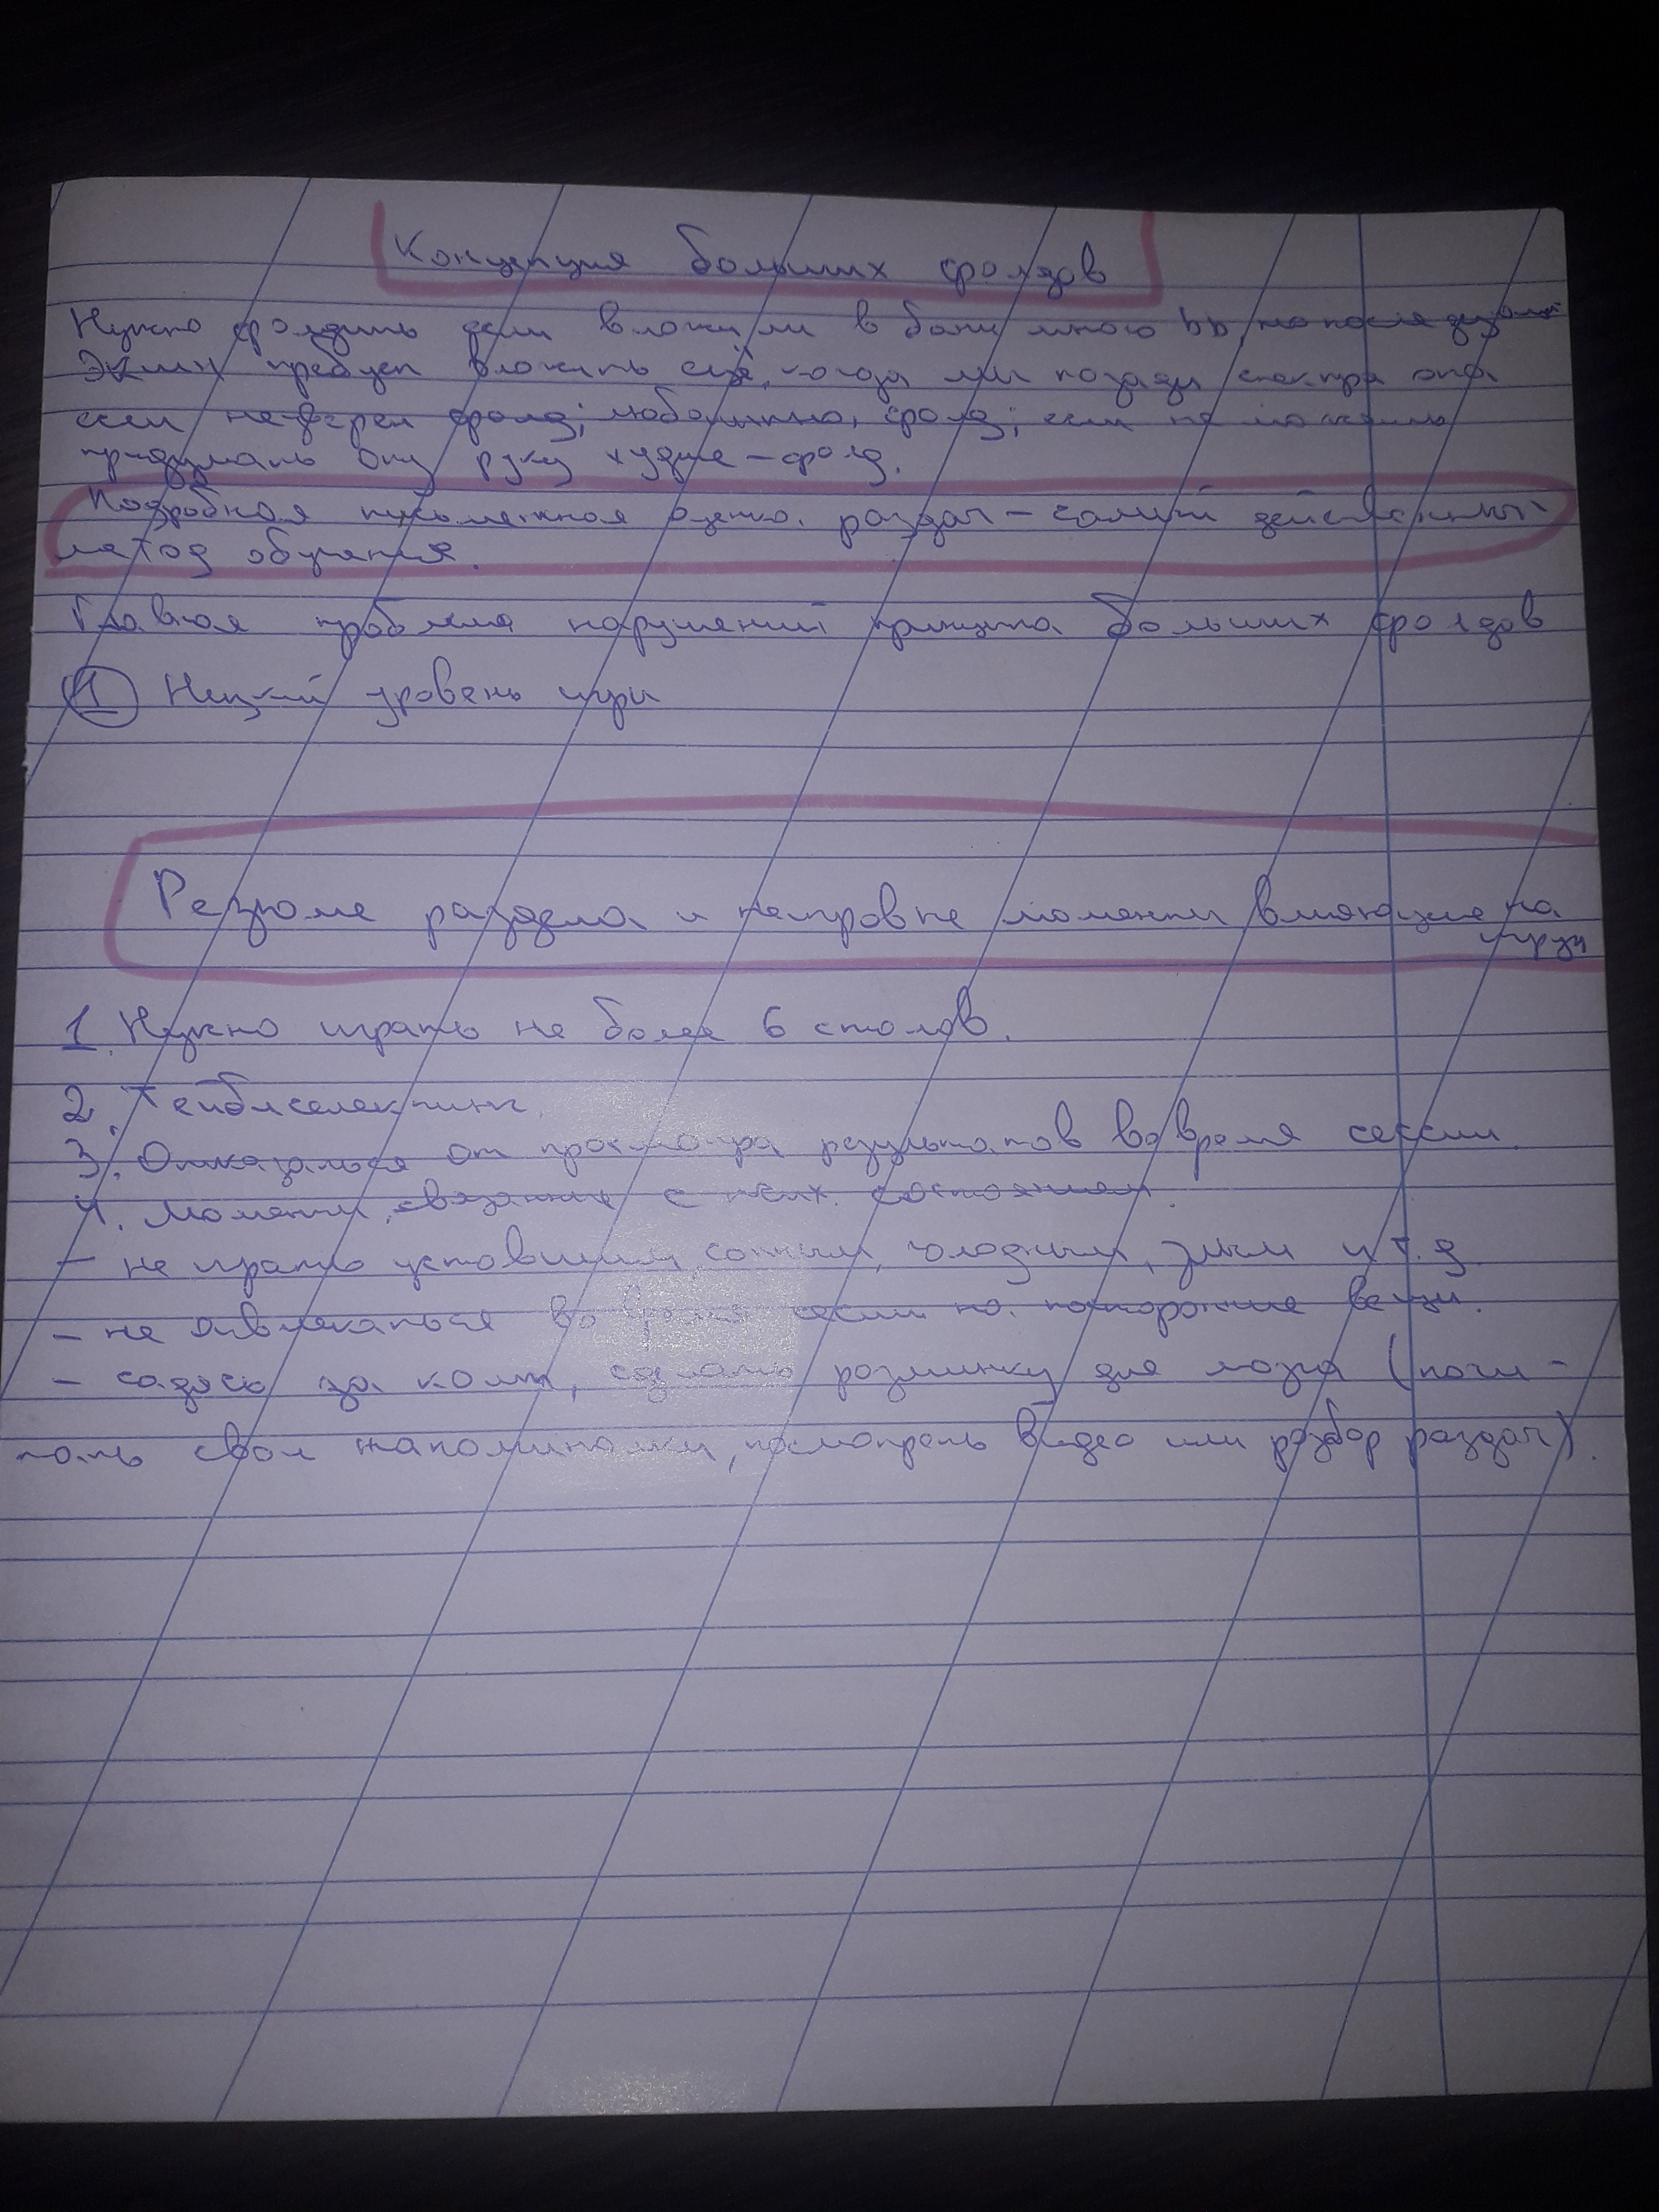 Концепция больших фолдов
Нужно фолдить если вложили в банк много bb, но последующий
экшн требует вложить ещё, когда мы позади спектра опа
если не уверен фолд; любопытно, фолд; если не можешь
придумать опу руку хуже - фолд.
Подробная письменная оценка раздач - самый действенный
метод обучения.
Главная проблема нарушений принципа больших фолдов
1 Низкий уровень игры
Резюме раздела и неигровые моменты влияющие на
игру
1. Нужно играть не более 6 столов.
2. Тейблселектинг.
3. Отказаться от просмотра результатов во время сессии.
4. Моменты, связанные с псих. состоянием.
- не играть уставшим, сонным, голодным, злым и т.д.
- не отвлекаться во время сессии на посторонние вещи.
- садясь за комп, сделать разминку для мозга (почи-
тать свои напоминалки, посмотреть видео или разбор раздач).